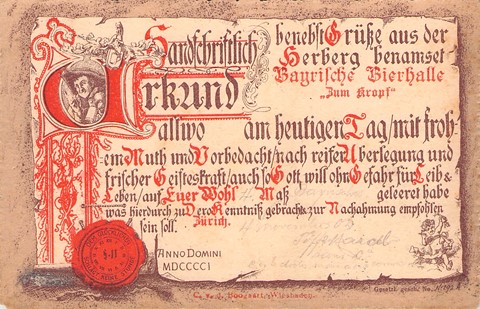 Handschriftlich benebst Grüße aus der
Herberg benamset
Bayrische Bierhalle
„Zum Kropf“
Urkund
allwo am heutigen Tag/mit froh-
em Muth und Vorbedacht/nach reifer Überlegung und
frischer Geisteskraft/auch so Gott, will ohn Gefahr für Leib &
Leben/auf Euer Wohl 4 Maß geleeret habe
was hierdurch zu Dero Kenntniß gebracht & zur Nachahmung empfohlen
sein soll. Zürich.
ANNO DOMINI
MDCCCCI
9-11
C. v. d. Boogaart, Wiesbaden.
Gesetzl. gesch. No.